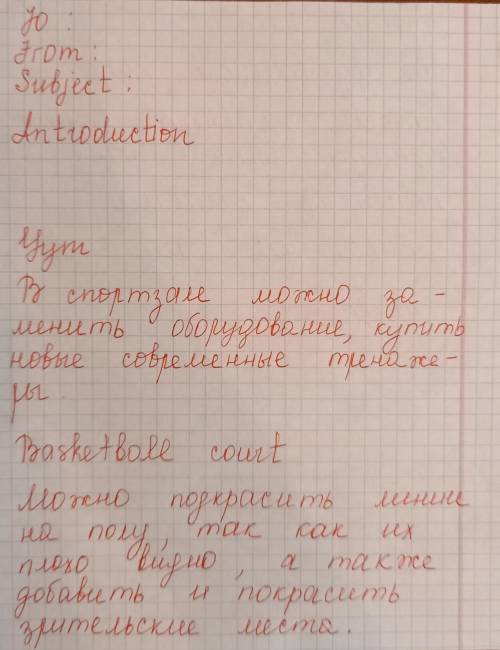 To :
From :
Subject :
Introduction
Gym
В спортзале можно за-
менить оборудование, купить
новые современные тренаже-
ры.
Basketball court
Можно подкрасить линии
на полу, так как их
плохо видно, а также
добавить и покрасить
зрительские места.